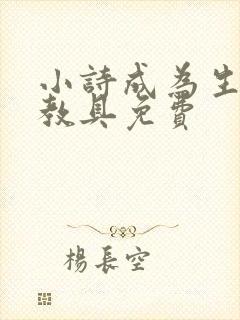 小詩成為生
教具免費
楊長空